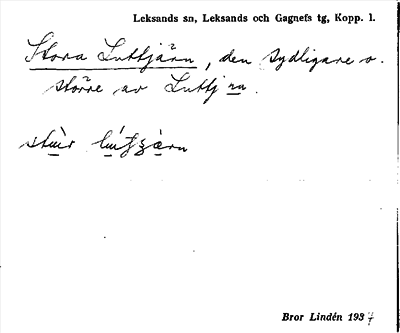 Leksands sn, Leksands och Gagnefs tg, Kopp. l.
Stora Luttjärn, den sydligare o.
större av Luttj rn.
Bror Lindén 193